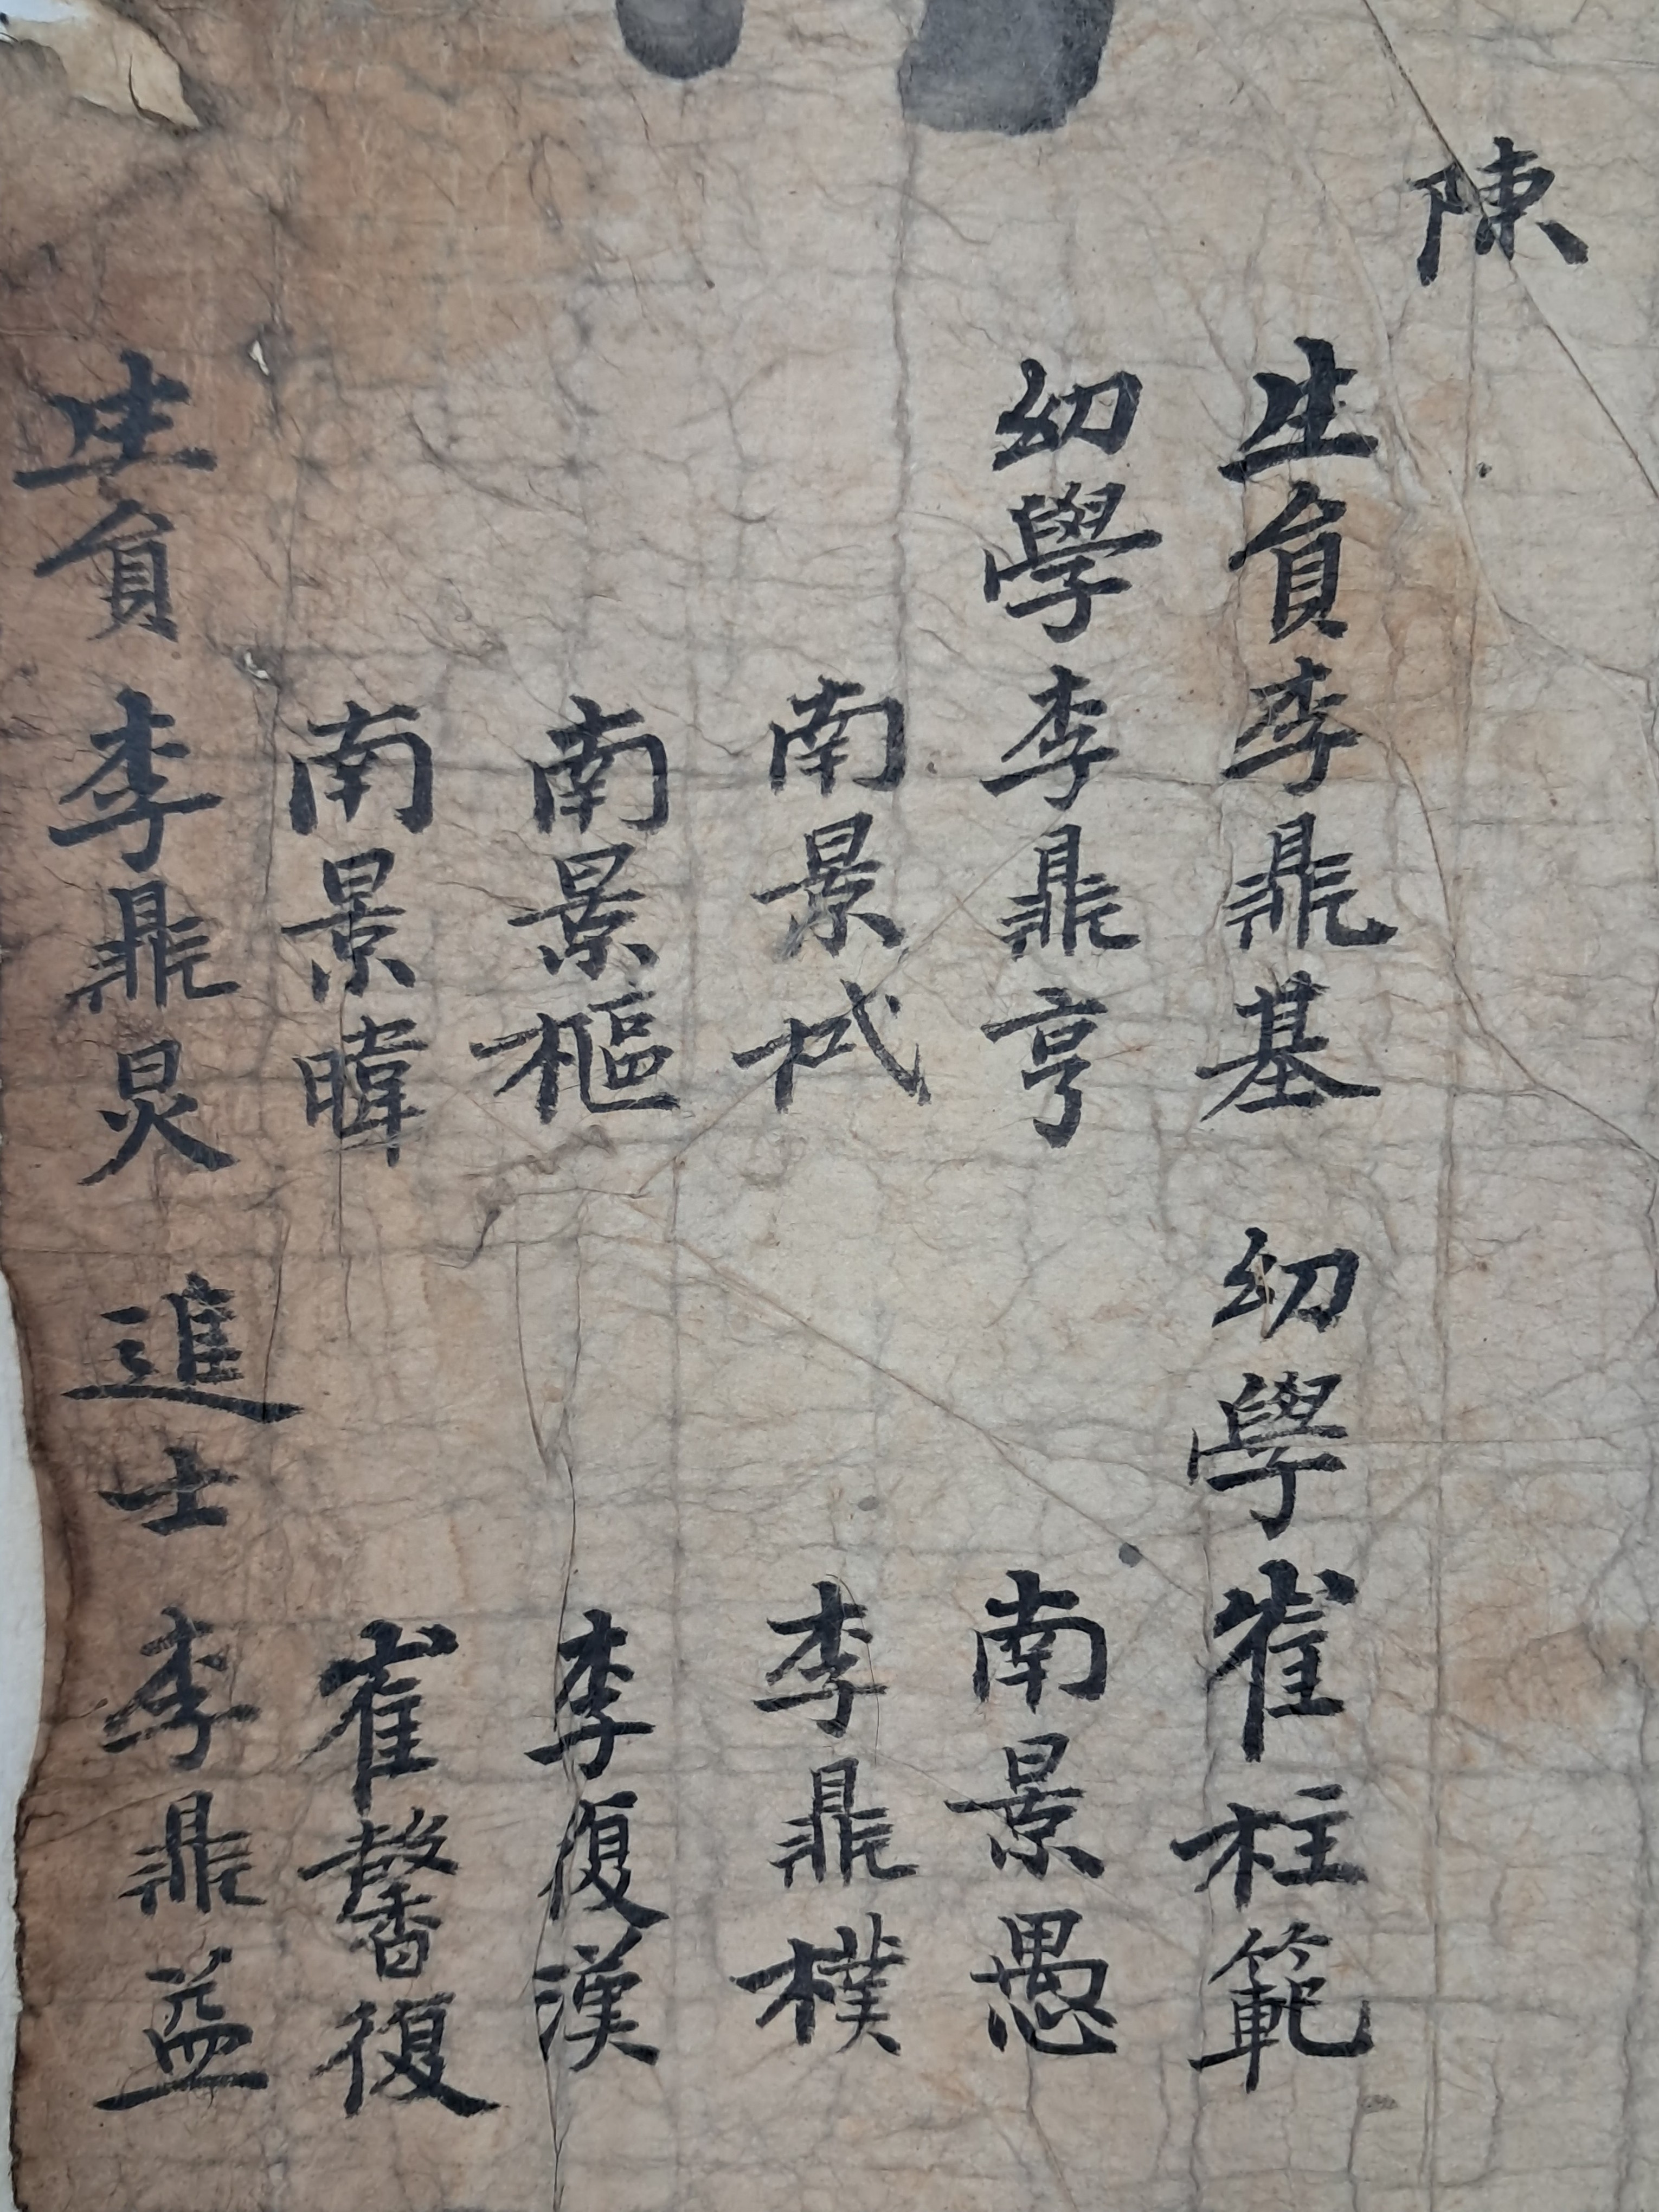 陳
生負李鼎基 幼學崔柱範
幼學李鼎亨 南景愚
南景栻 李鼎樸
南景樞 李復漢
南景暐 崔馨復
生負李鼎炅 進士李鼎益